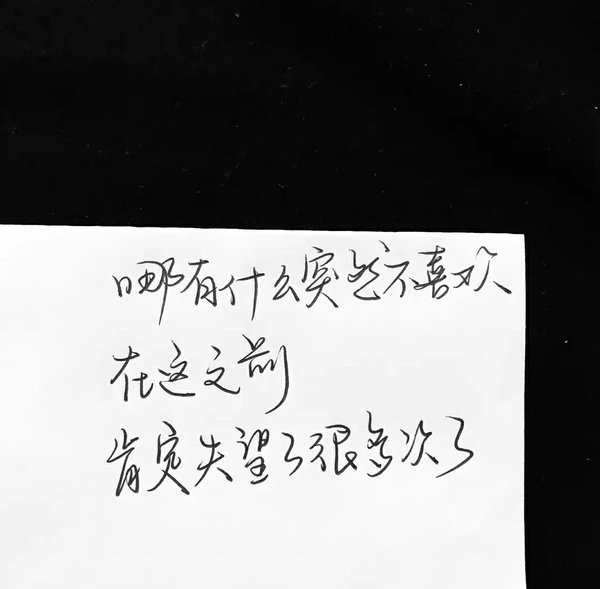 哪有什么突然不喜欢
在这之前
肯定失望了很多次了